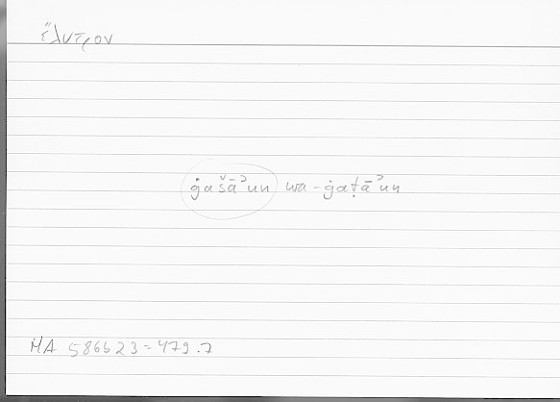 ἔλυτρον
ġašāʾun wa-ġaṭāʾun
HA 586b23 = 479.7